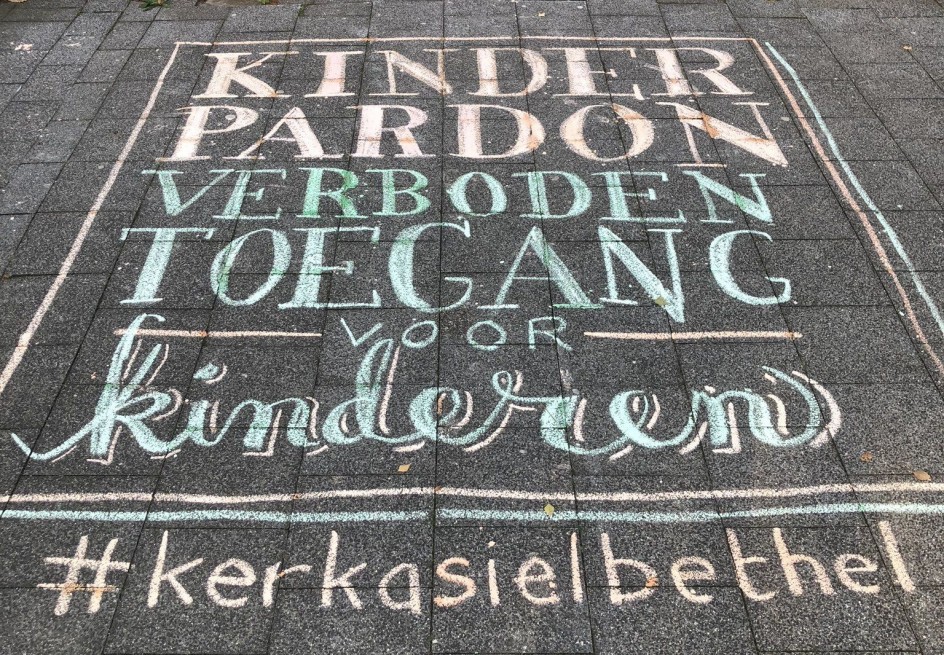 KINDER
PARDON
VERBODEN
TOEGANG
VOOR
kinderen
#kerkasielbethel